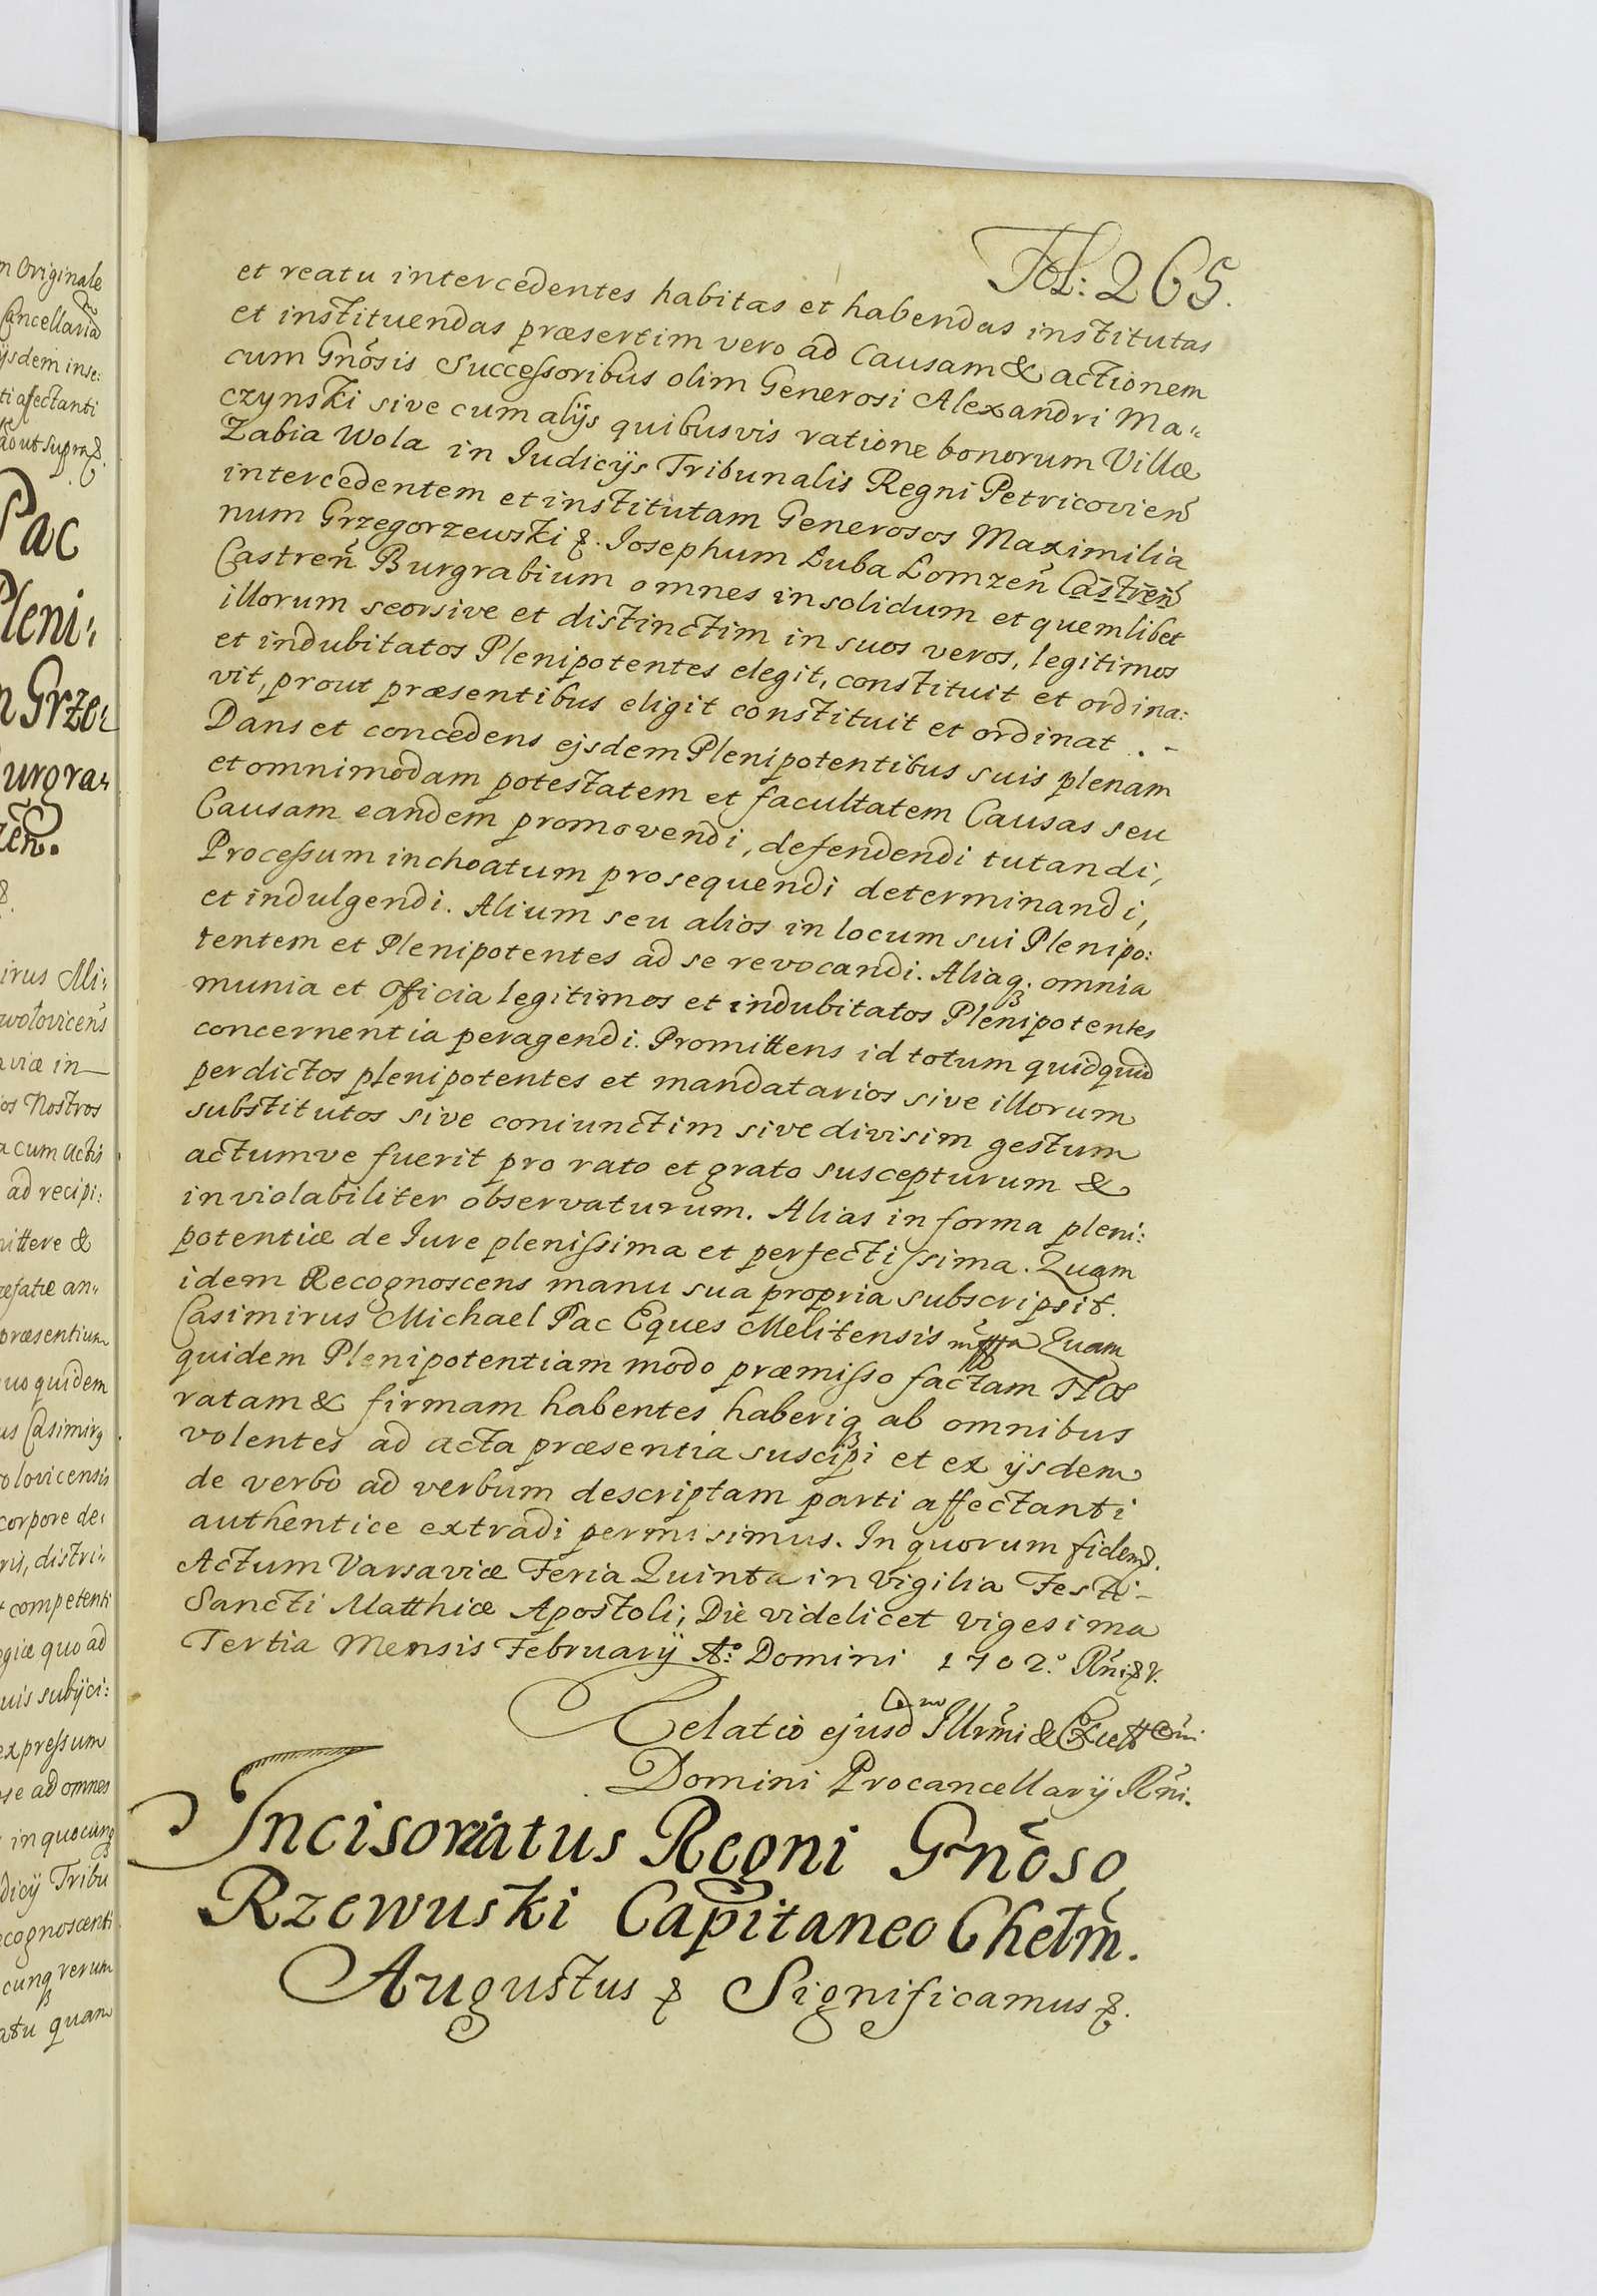 Fol: 265.
et reatu intercedentes habitas et habendas institutas
et instituendas præsertim vero ad Causam & actionem
cum Gnosis Successoribus olim Generosi Alexandri Ma=
czynski sive cum alijs quibusvis ratione bonorum Villæ
Zabia Wola in Iudicijs Tribunalis Regni Petricovien
intercedentem et institutam Generosos Maximilia
num Grzegorzewski &. Iosephum Łuba Łomzeń Castreń
Castreń Burgrabium omnes insolidum et quemlibet
illorum seorsive et distinctim in suos veros, legitimos
et indubitatos Plenipotentes elegit, constituit et ordina:
vit, prout præsentibus eligit constituit et ordinat . -
Dans et concedens ejsdem Plenipotentibus suis plenam
et omnimodam potestatem et facultatem Causas seu
Causam eandem promovendi, defendendi tutandi,
Processum inchoatum prosequendi determinandi,
et indulgendi. Alium seu alios in locum sui Plenipo:
tentem et Plenipotentes ad se revocandi. Aliaq. omnia
munia et Officia legitimos et indubitatos Plenipotentes
concernentia peragendi. Promittens id totum quidquid
per dictos plenipotentes et mandatarios sive illorum
substitutos sive coniunctim sive divisim gestum
actumve fuerit pro rato et grato suscepturum &
inviolabiliter observaturum. Alias in forma pleni:
potentiæ de Iure plenissima et perfectissima. Quam
idem Recognoscens manu sua propria subscripsit.
Casimirus Michael Pac Eques Melitensis mppa Quam
quidem Plenipotentiam modo præmisso factam Nos
ratam & firmam habentes haberiq ab omnibus
volentes ad acta præsentia suscipi et ex ijsdem
de verbo ad verbum descriptam parti affectanti
authentice extradi permisimus. In quorum fidem &.
Actum Varsaviæ Feria Quinta in Vigilia Festi -
Sancti Matthiæ Apostoli, Die videlicet vigesima
Tertia Mensis February Aº: Domini 1702.º Rni & V.
Relatio ejusd Illrmi & Excettmi
Domini Procancellarij Rni.
Incisoriatus Regni Gnoso
Rzewuski Capitaneo Chełm.
Augustus & Significamus &.